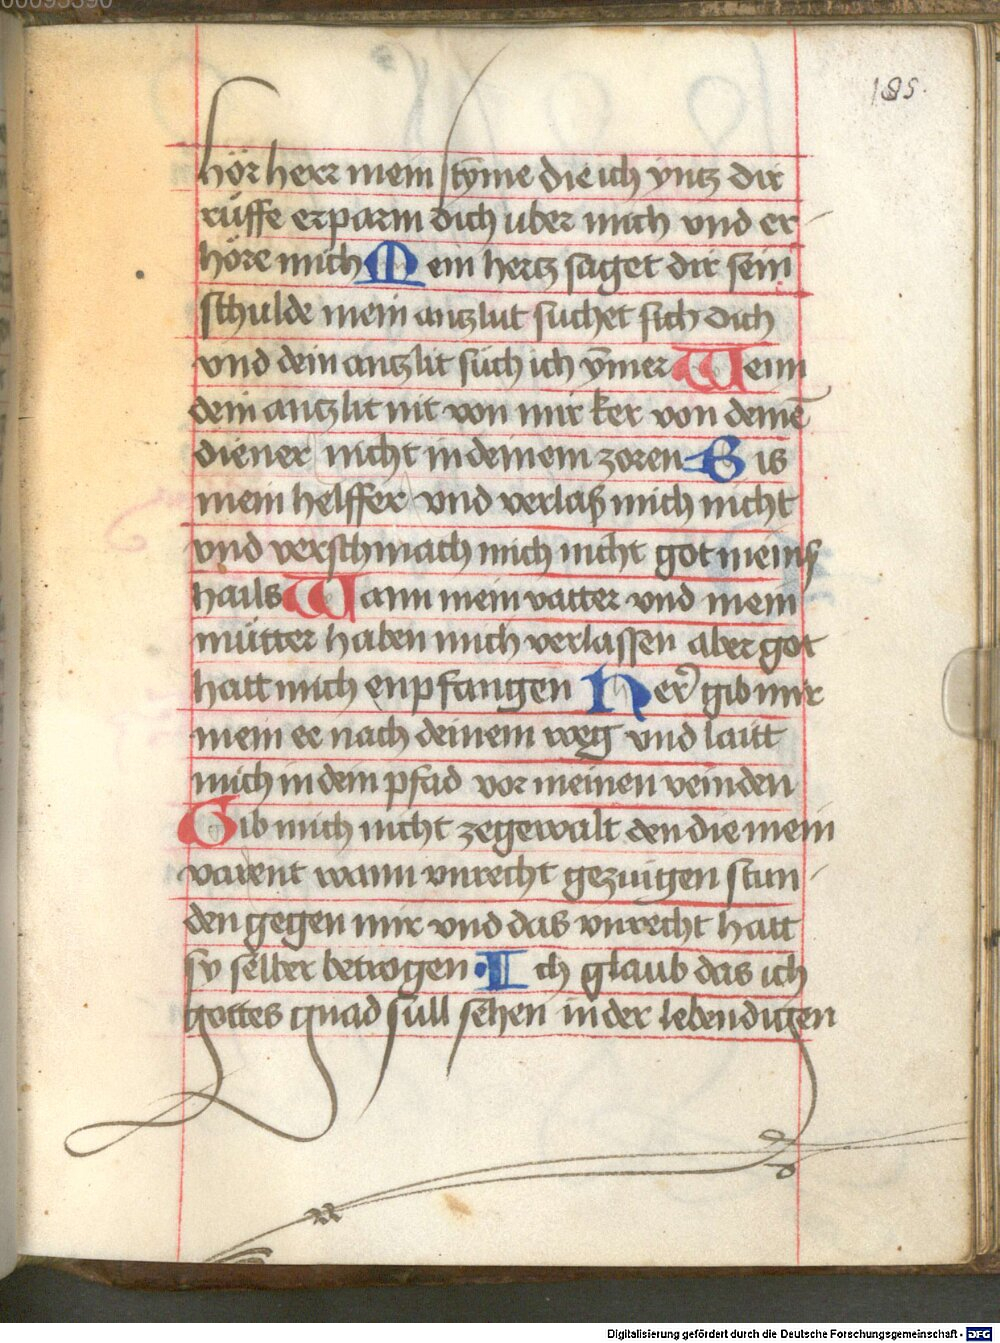 00095390
185.
hör herr mein stÿme die ich yntz dir
rüffe erparm dich uber mich vnd er
höre mich Mein hertz saget dir sein
schulde mein antzlut suchet sich dich
vnd dein antzlit süch ich ÿmer Wenn
dein antzlit nit von mir ker von deinē
diener nicht in deinem zoren Bis
mein helffer vnd verlaß mich nicht
vnd verschmach mich nicht got meins
hails Wann mein vatter vnd mein
mütter haben mich verlassen aber got
hatt mich enpfangen Her gib mir
mein ee nach deinem weg vnd laitt
mich in dein pfad vor meinen veinden
Gib mich nicht zegewalt den die mein
varent wann vnrecht gezuigen stun
den gegen mir vnd das vnrecht hatt
sy selber betrogen Ich glaub das ich
gottes gnad süll sehen in der lebendigen
Digitalisierung gefördert durch die Deutsche Forschungsgemeinschaft - DFG